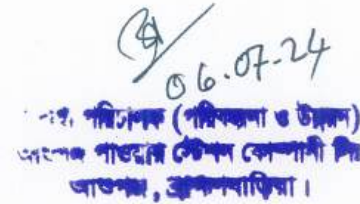 06.07.24
পরিচালক (পরিকল্পনা ও উন্নয়ন)
পাওয়ার স্টেশন কোম্পানী লিঃ
আশুগঞ্জ, ব্রাহ্মণবাড়িয়া।